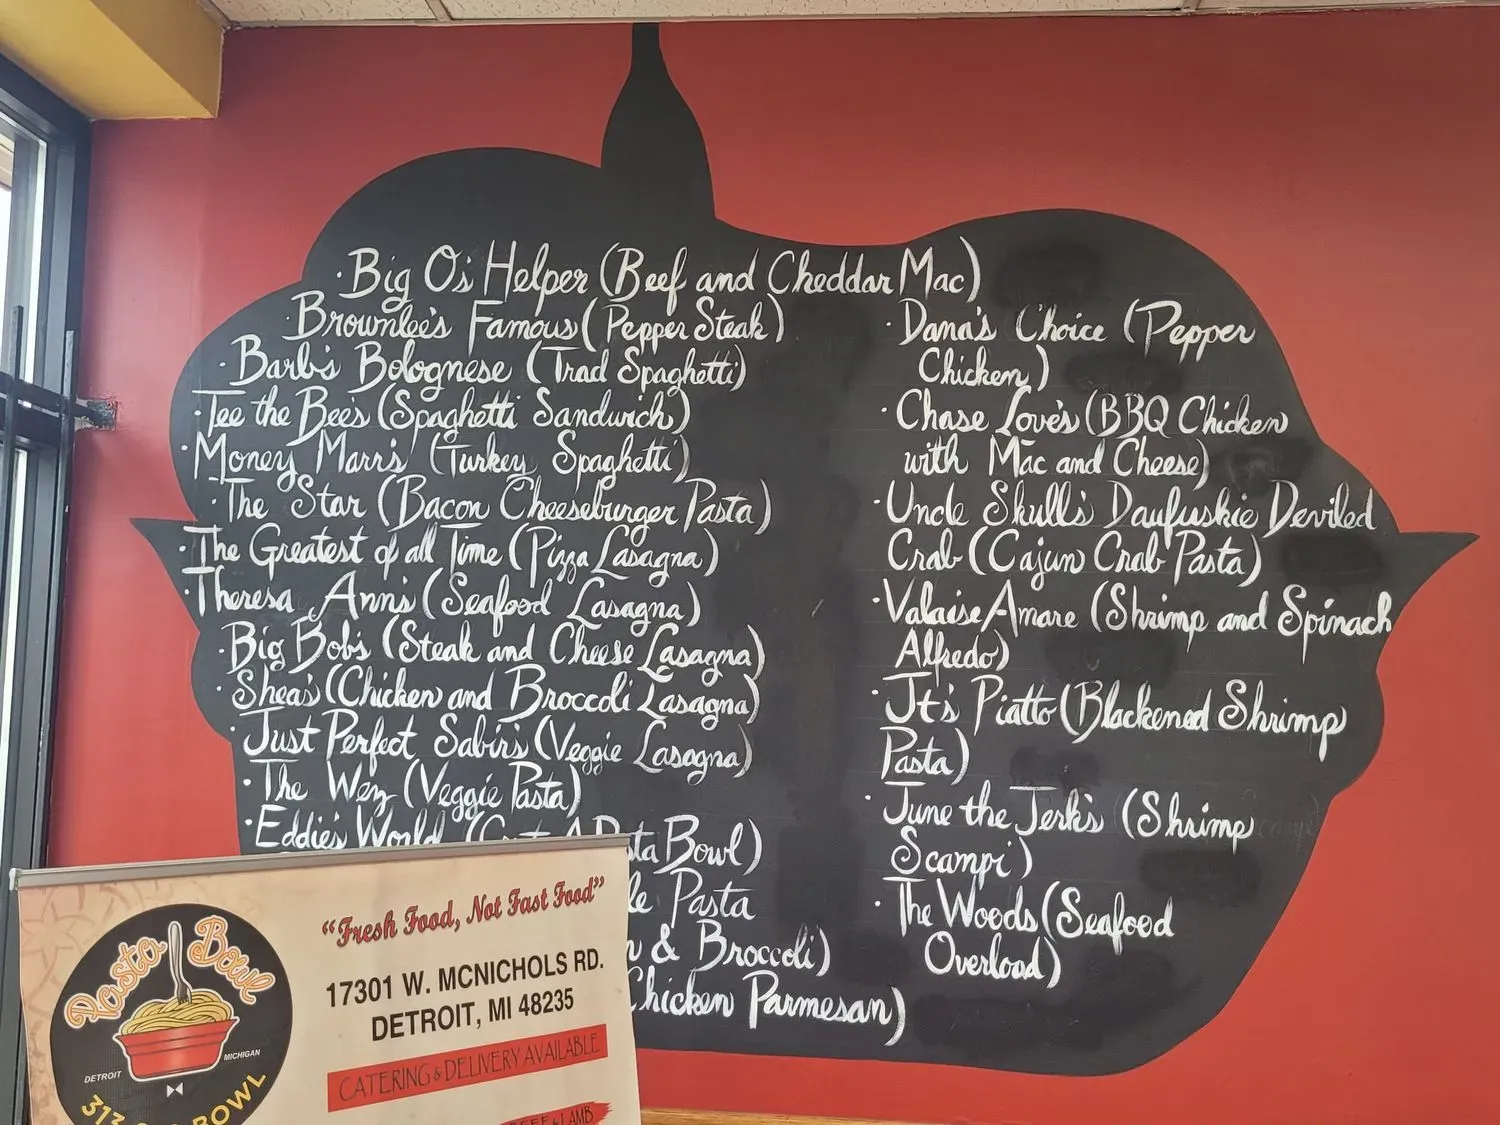 ·Big O's Helper (Beef and Cheddar Mac)
·Brownlee's Famous (Pepper Steak)
·Barb's Bolognese (Trad Spaghetti)
·Tee the Bee's (Spaghetti Sandwich)
·Money Marr's (Turkey Spaghetti)
·The Star (Bacon Cheeseburger Pasta)
·The Greatest of all Time (Pizza Lasagna)
·Theresa Ann's (Seafood Lasagna)
·Big Bob's (Steak and Cheese Lasagna)
·Shea's (Chicken and Broccoli Lasagna)
·Just Perfect Sabir's (Veggie Lasagna)
·The Wez (Veggie Pasta)
·Eddie's World Bowl)
Pasta
& Broccoli)
Chicken Parmesan)
·Dana's Choice (Pepper
Chicken)
·Chase Love's (BBQ Chicken
with Mac and Cheese)
·Uncle Skull's Daufuskie Deviled
Crab (Cajun Crab Pasta)
·Valaise Amare (Shrimp and Spinach
Alfredo)
·Jt's Piatto (Blackened Shrimp
Pasta)
·June the Jerk's (Shrimp
Scampi)
·The Woods (Seafood
Overload)
Pasta Bowl
DETROIT
MICHIGAN
BOWL
"Fresh Food, Not Fast Food"
17301 W. MCNICHOLS RD.
DETROIT, MI 48235
CATERING & DELIVERY AVAILABLE
LAMB